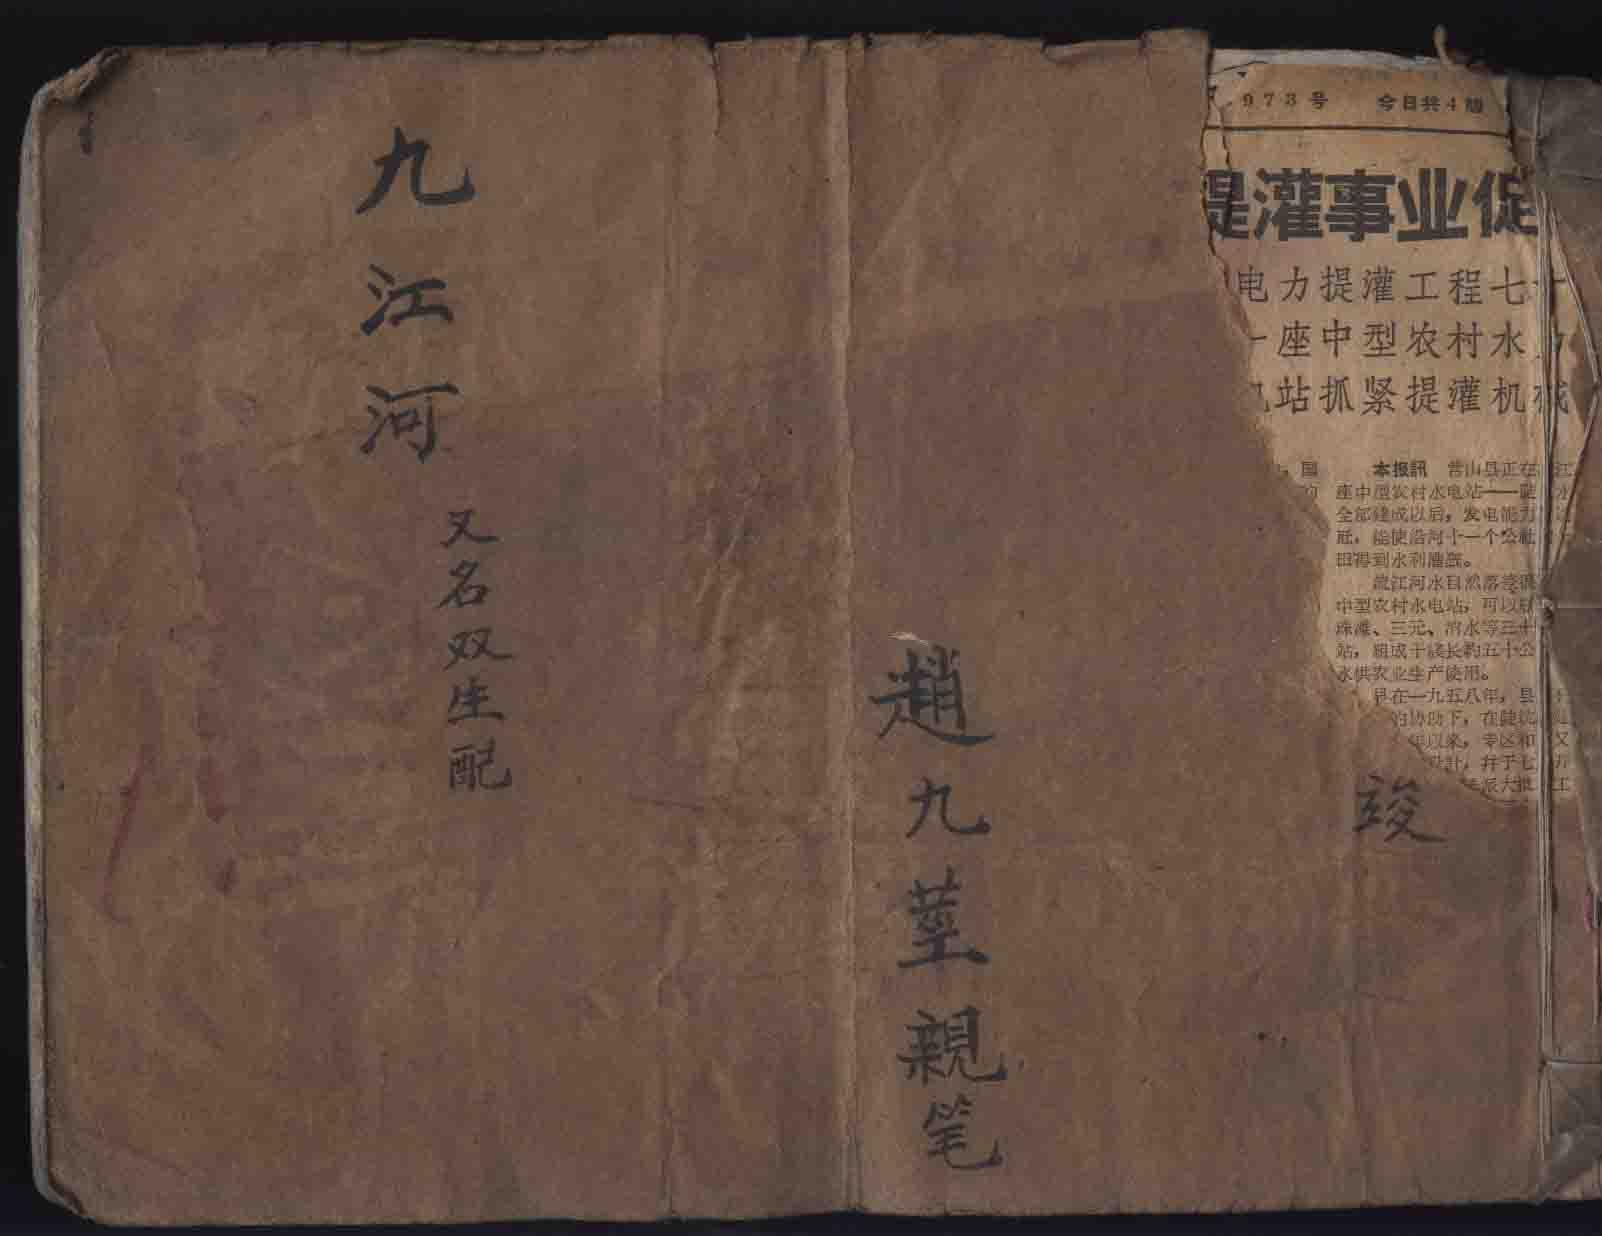 九江河
又名双生配
趙九莖親笔
竣
973号 今日共4版
提灌事业促
电力提灌工程七十
座中型农村水力
站抓紧提灌机械
国
本报訊 营山县正在 江
座中型农村水电站——
全部建成以后，发电能力
社，能使沿河十一个公社
田得到水利灌漑。
流江河水自然落差
中型农村水电站，可以
珠滩、三元、消水等三十
站，組成干綫长約五十公
水供农业生产使用。
早在一九五八年，县
的协助下，在
年以来，专区和 又
設計，幷于七
派大批 工